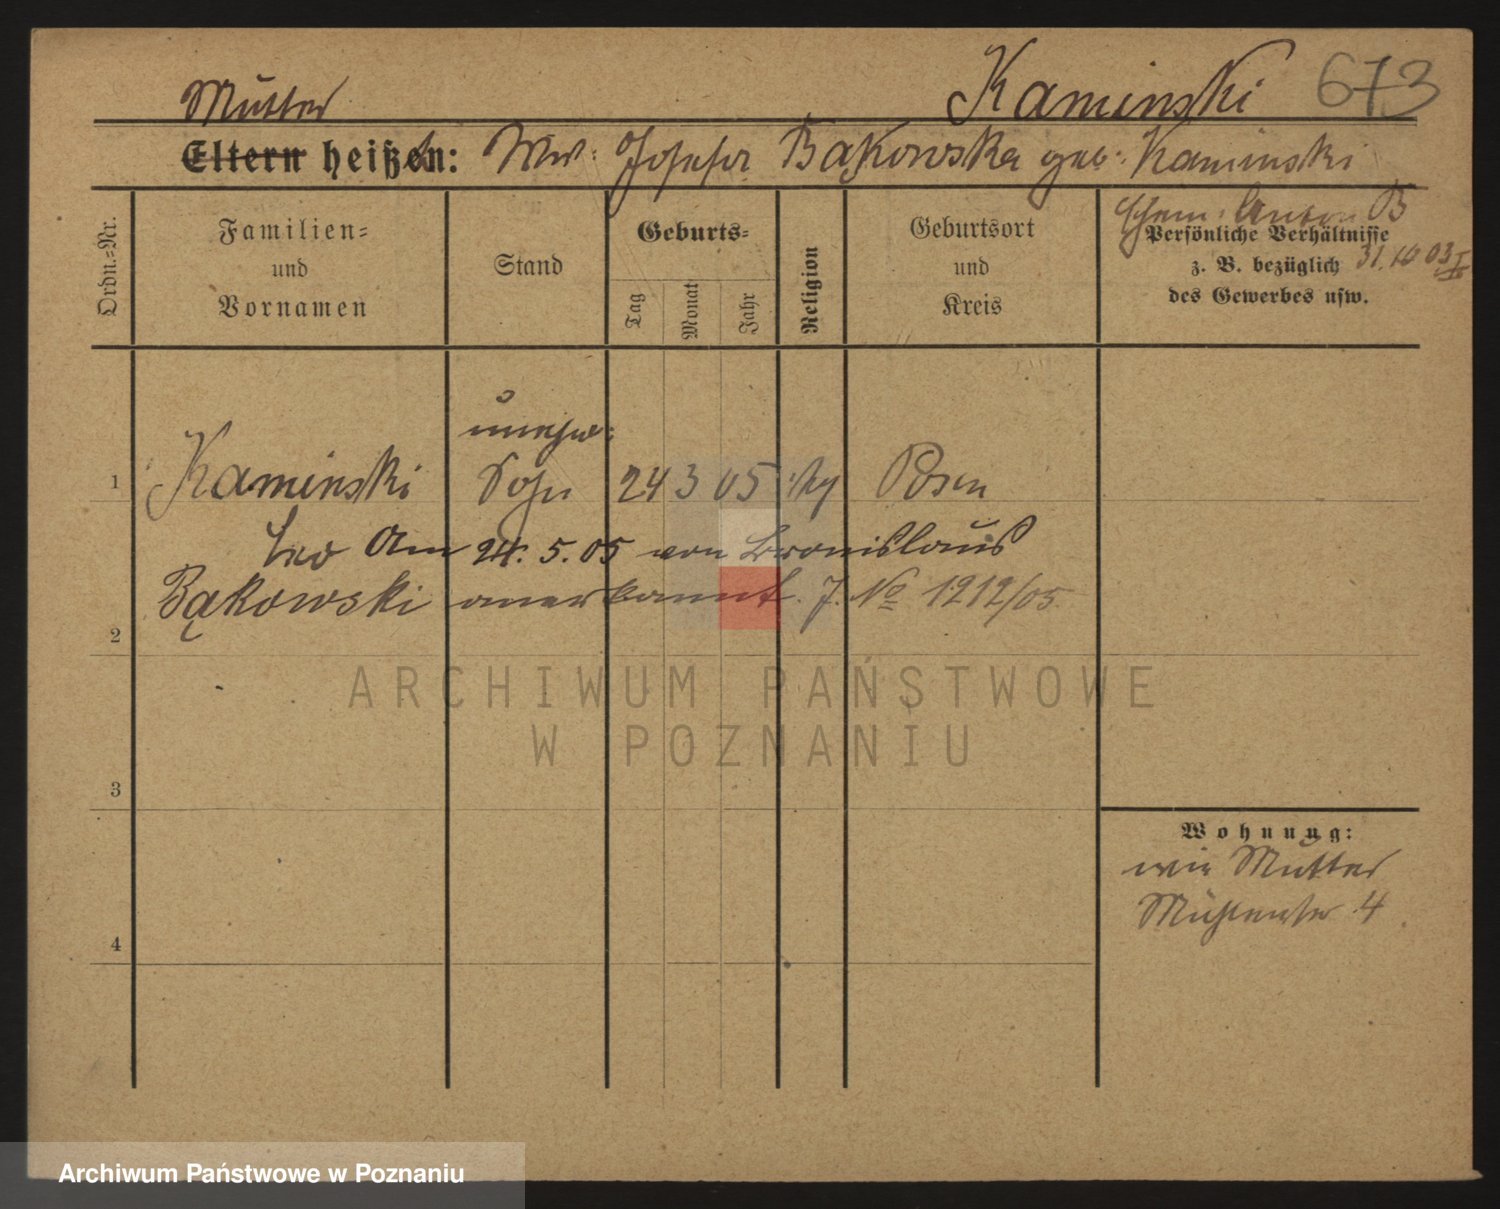 Kaminski 673
Mutter
Eltern heißt: Ww. Josefa Bąkowska geb. Kaminski
Ehem. Anton B
31.10 03
Ordn.-Nr.
Familien-
und
Vornamen
Stand
Geburts-
Tag
Monat
Jahr
Religion
Geburtsort
und
Kreis
Persönliche Verhältnisse
z. B. bezüglich
des Gewerbes usw.
unehe:
1 Kaminski Sohn 24 3 05 Posen
Leo Am 24. 5. 05 von Bronislaus
Bąkowski anerkannt. J. No 1212/05
2
ARCHIWUM PAŃSTWOWE
W POZNANIU
3
Wohnung:
wie Mutter
Mühlenstr 4
4
Archiwum Państwowe w Poznaniu